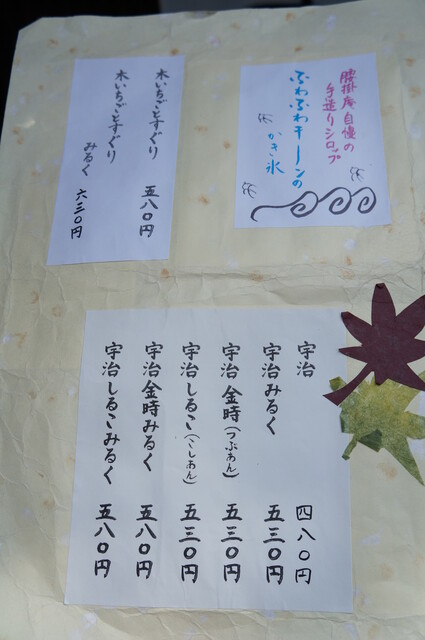 腰掛庵自慢の
手造りシロップ
ふわふわキーンの
かき氷
木いちごとすぐり 五八〇円
木いちごとすぐり
みるく 六三〇円
宇治 四八〇円
宇治みるく 五三〇円
宇治金時(つぶあん) 五三〇円
宇治しるこ(こしあん) 五三〇円
宇治金時みるく 五八〇円
宇治しるこみるく 五八〇円